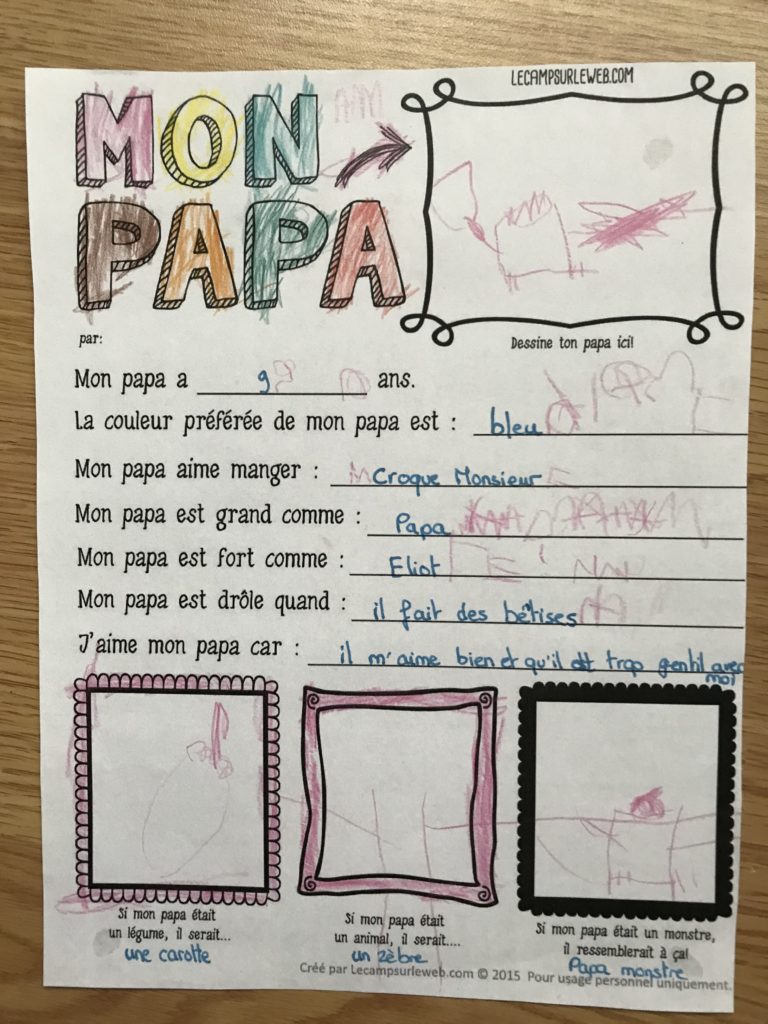 LECAMPSURLEWEB.COM
MON
PAPA
Dessine ton papa ici!
par:
Mon papa a 9 ans.
La couleur préférée de mon papa est : bleu
Mon papa aime manger : Croque Monsieur
Mon papa est grand comme : Papa
Mon papa est fort comme : Eliot
Mon papa est drôle quand : il fait des bêtises
J'aime mon papa car : il m'aime bien et qu'il est trop gentil avec
moi
Si mon papa était
un légume, il serait...
une carotte
Si mon papa était
un animal, il serait....
un zèbre
Si mon papa était un monstre,
il ressemblerait à ça!
Papa monstre
Créé par Lecampsurleweb.com © 2015 Pour usage personnel uniquement.